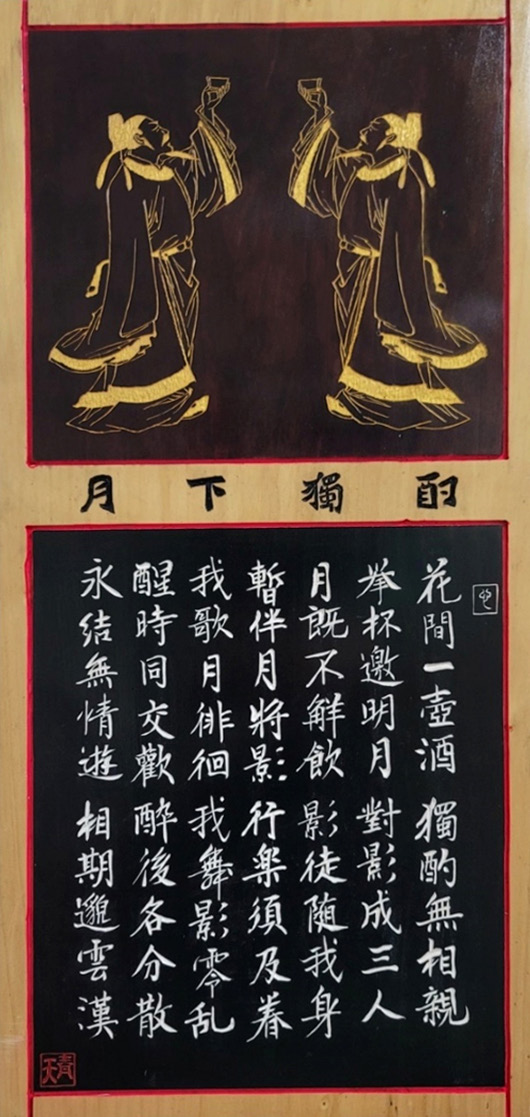 月下獨酌
花間一壺酒 獨酌無相親
举杯邀明月 對影成三人
月既不觧飲 影徒随我身
暫伴月將影 行楽須及春
我歌月徘徊 我舞影零乱
醒時同交歡 醉後各分散
永结無情遊 相期邈雲漢
青天